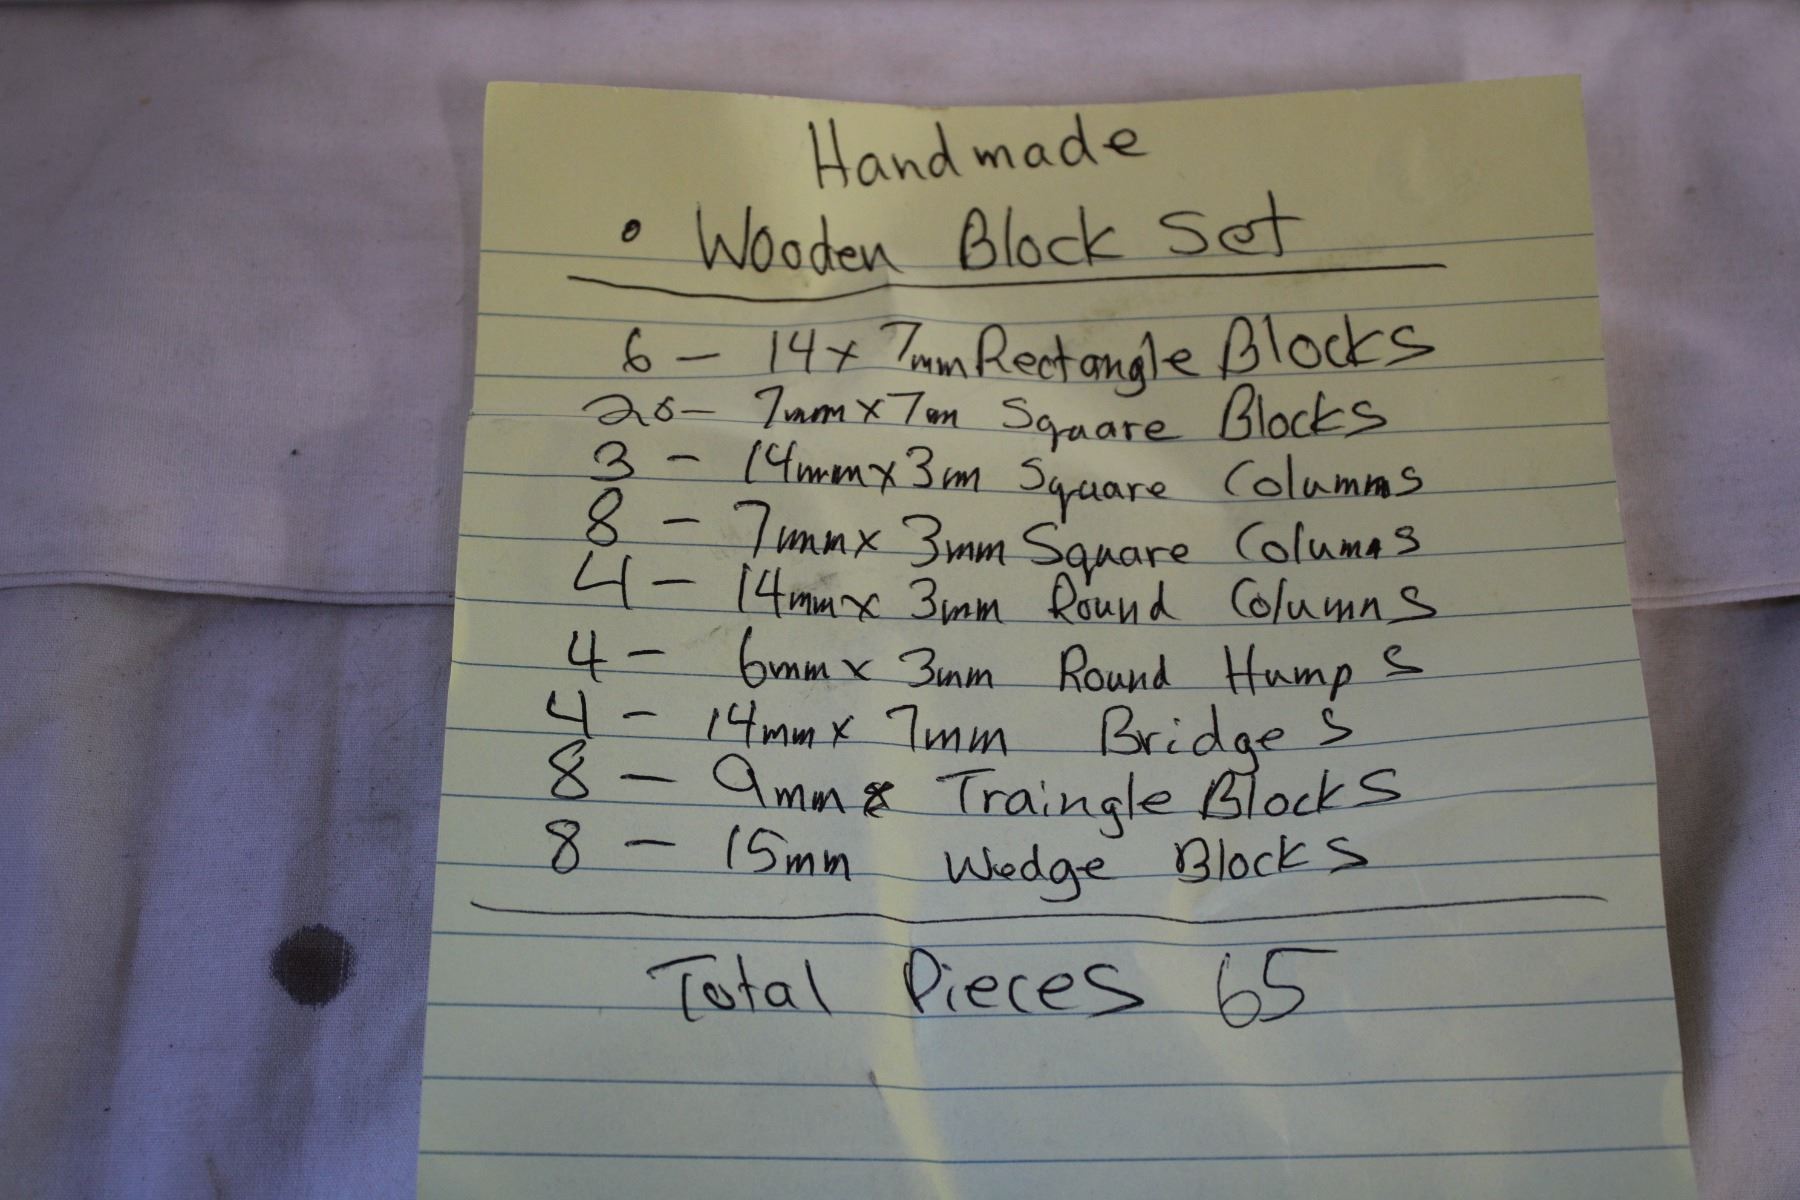 Handmade
• Wooden Block Set
6 — 14x 7mm Rectangle Blocks
20 — 7mm x 7m Square Blocks
3 — 14mm x 3m Square Columns
8 — 7mm x 3mm Square Columns
4 — 14mm x 3mm Round Columns
4 — 6mm x 3mm Round Humps
4 — 14mm x 7mm Bridges
8 — 9mm Traingle Blocks
8 — 15mm Wedge Blocks
Total Pieces 65